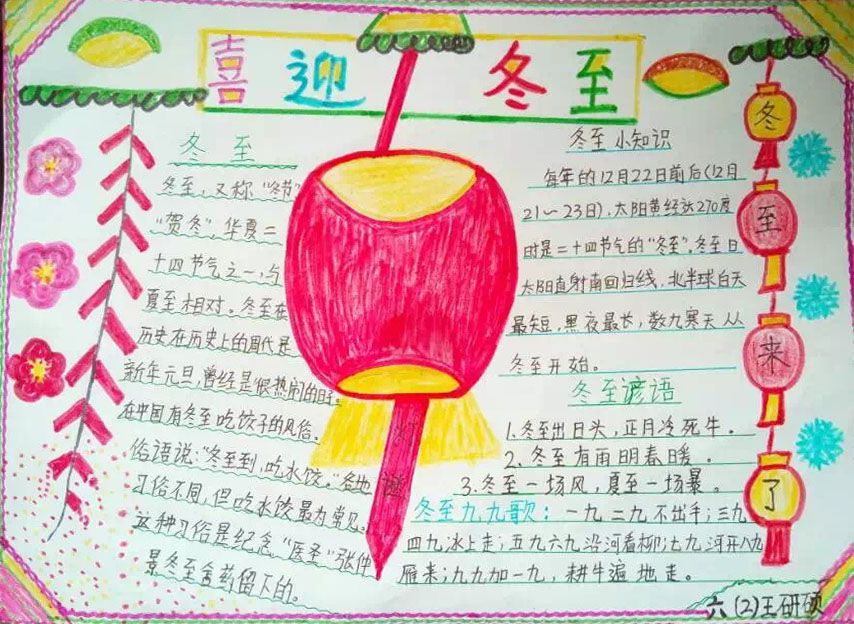 喜迎冬至
冬至
冬至，又称"冬节"
"贺冬"华夏二
十四节气之一，与
夏至相对。冬至在
历史在历史上的周代是
新年元旦，曾经是很热闹的日子。
在中国有冬至吃饺子的风俗。
俗语说："冬至到，吃水饺。"各地
习俗不同，但吃水饺最为常见。
这种习俗是纪念"医圣"张仲
景冬至舍药留下的。
灯
谜
冬至小知识
每年的12月22日前后(12月
21～23日)，太阳黄经达270度
时是二十四节气的"冬至"。冬至日
太阳直射南回归线，北半球白天
最短，黑夜最长，数九寒天从
冬至开始。
冬至谚语
1.冬至出日头，正月冷死牛。
2.冬至有雨明春暖。
3.冬至一场风，夏至一场暴。
冬至九九歌：一九二九不出手；三九
四九冰上走；五九六九沿河看柳；七九河开八九
雁来；九九加一九，耕牛遍地走。
冬
至
来
了
六(2)王研硕